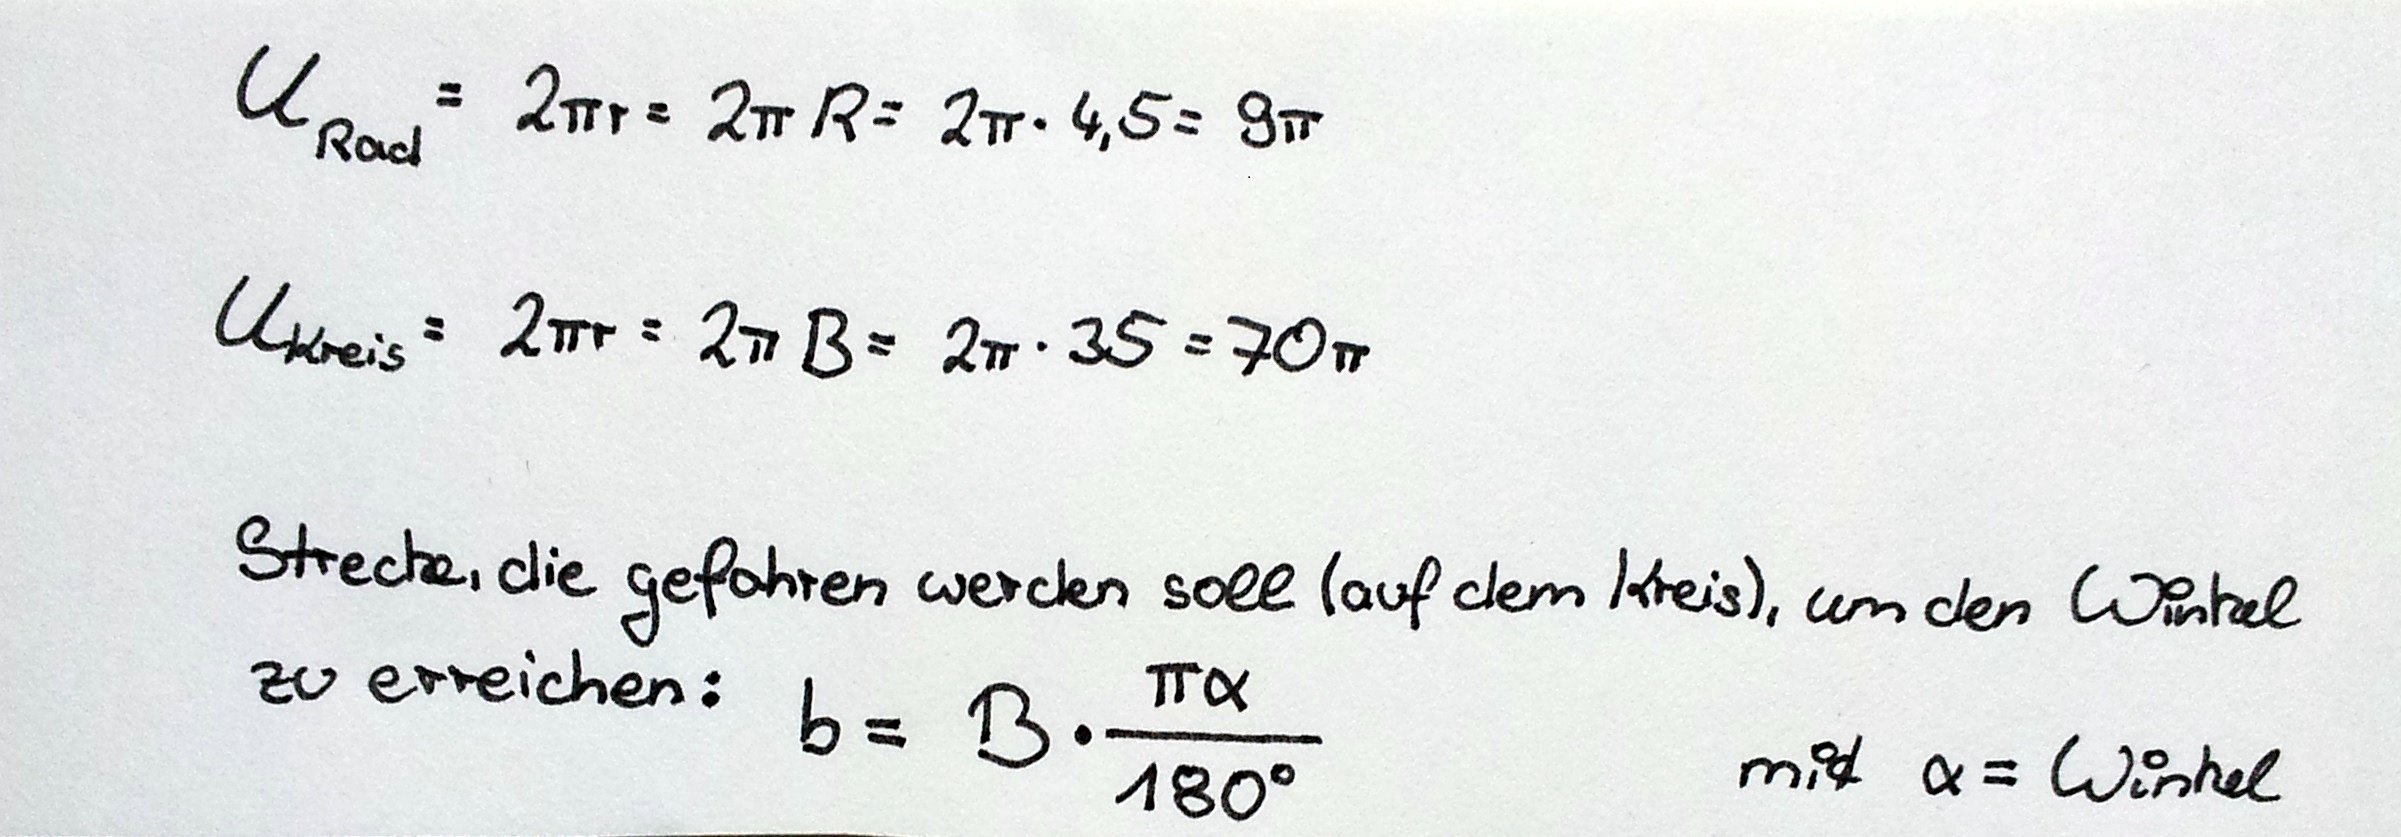 U_Rad = 2πr = 2πR = 2π · 4,5 = 9π
U_Kreis = 2πr = 2πB = 2π · 35 = 70π
Strecke, die gefahren werden soll (auf dem Kreis), um den Winkel
zu erreichen: b = B · πα/180°
mit α = Winkel